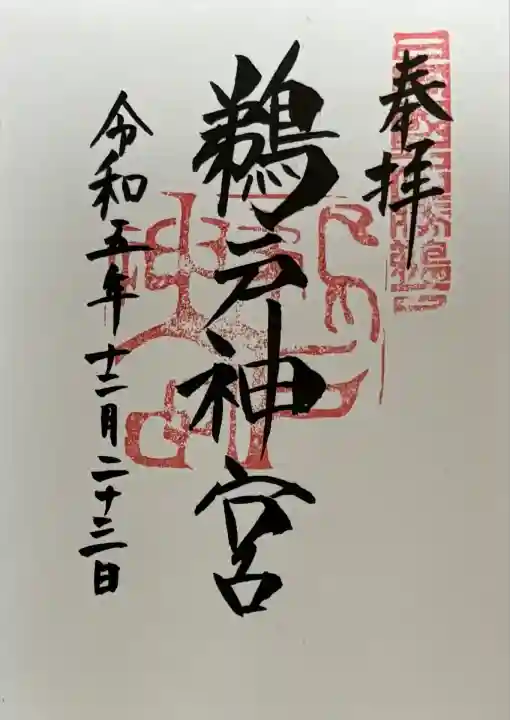 奉拝
鵜戸神宮
令和五年十二月二十三日